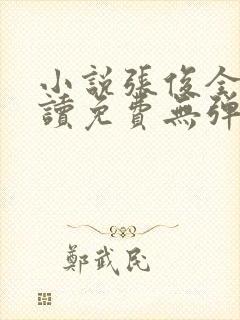 小説張俊全
讀免費無彈
鄭武民